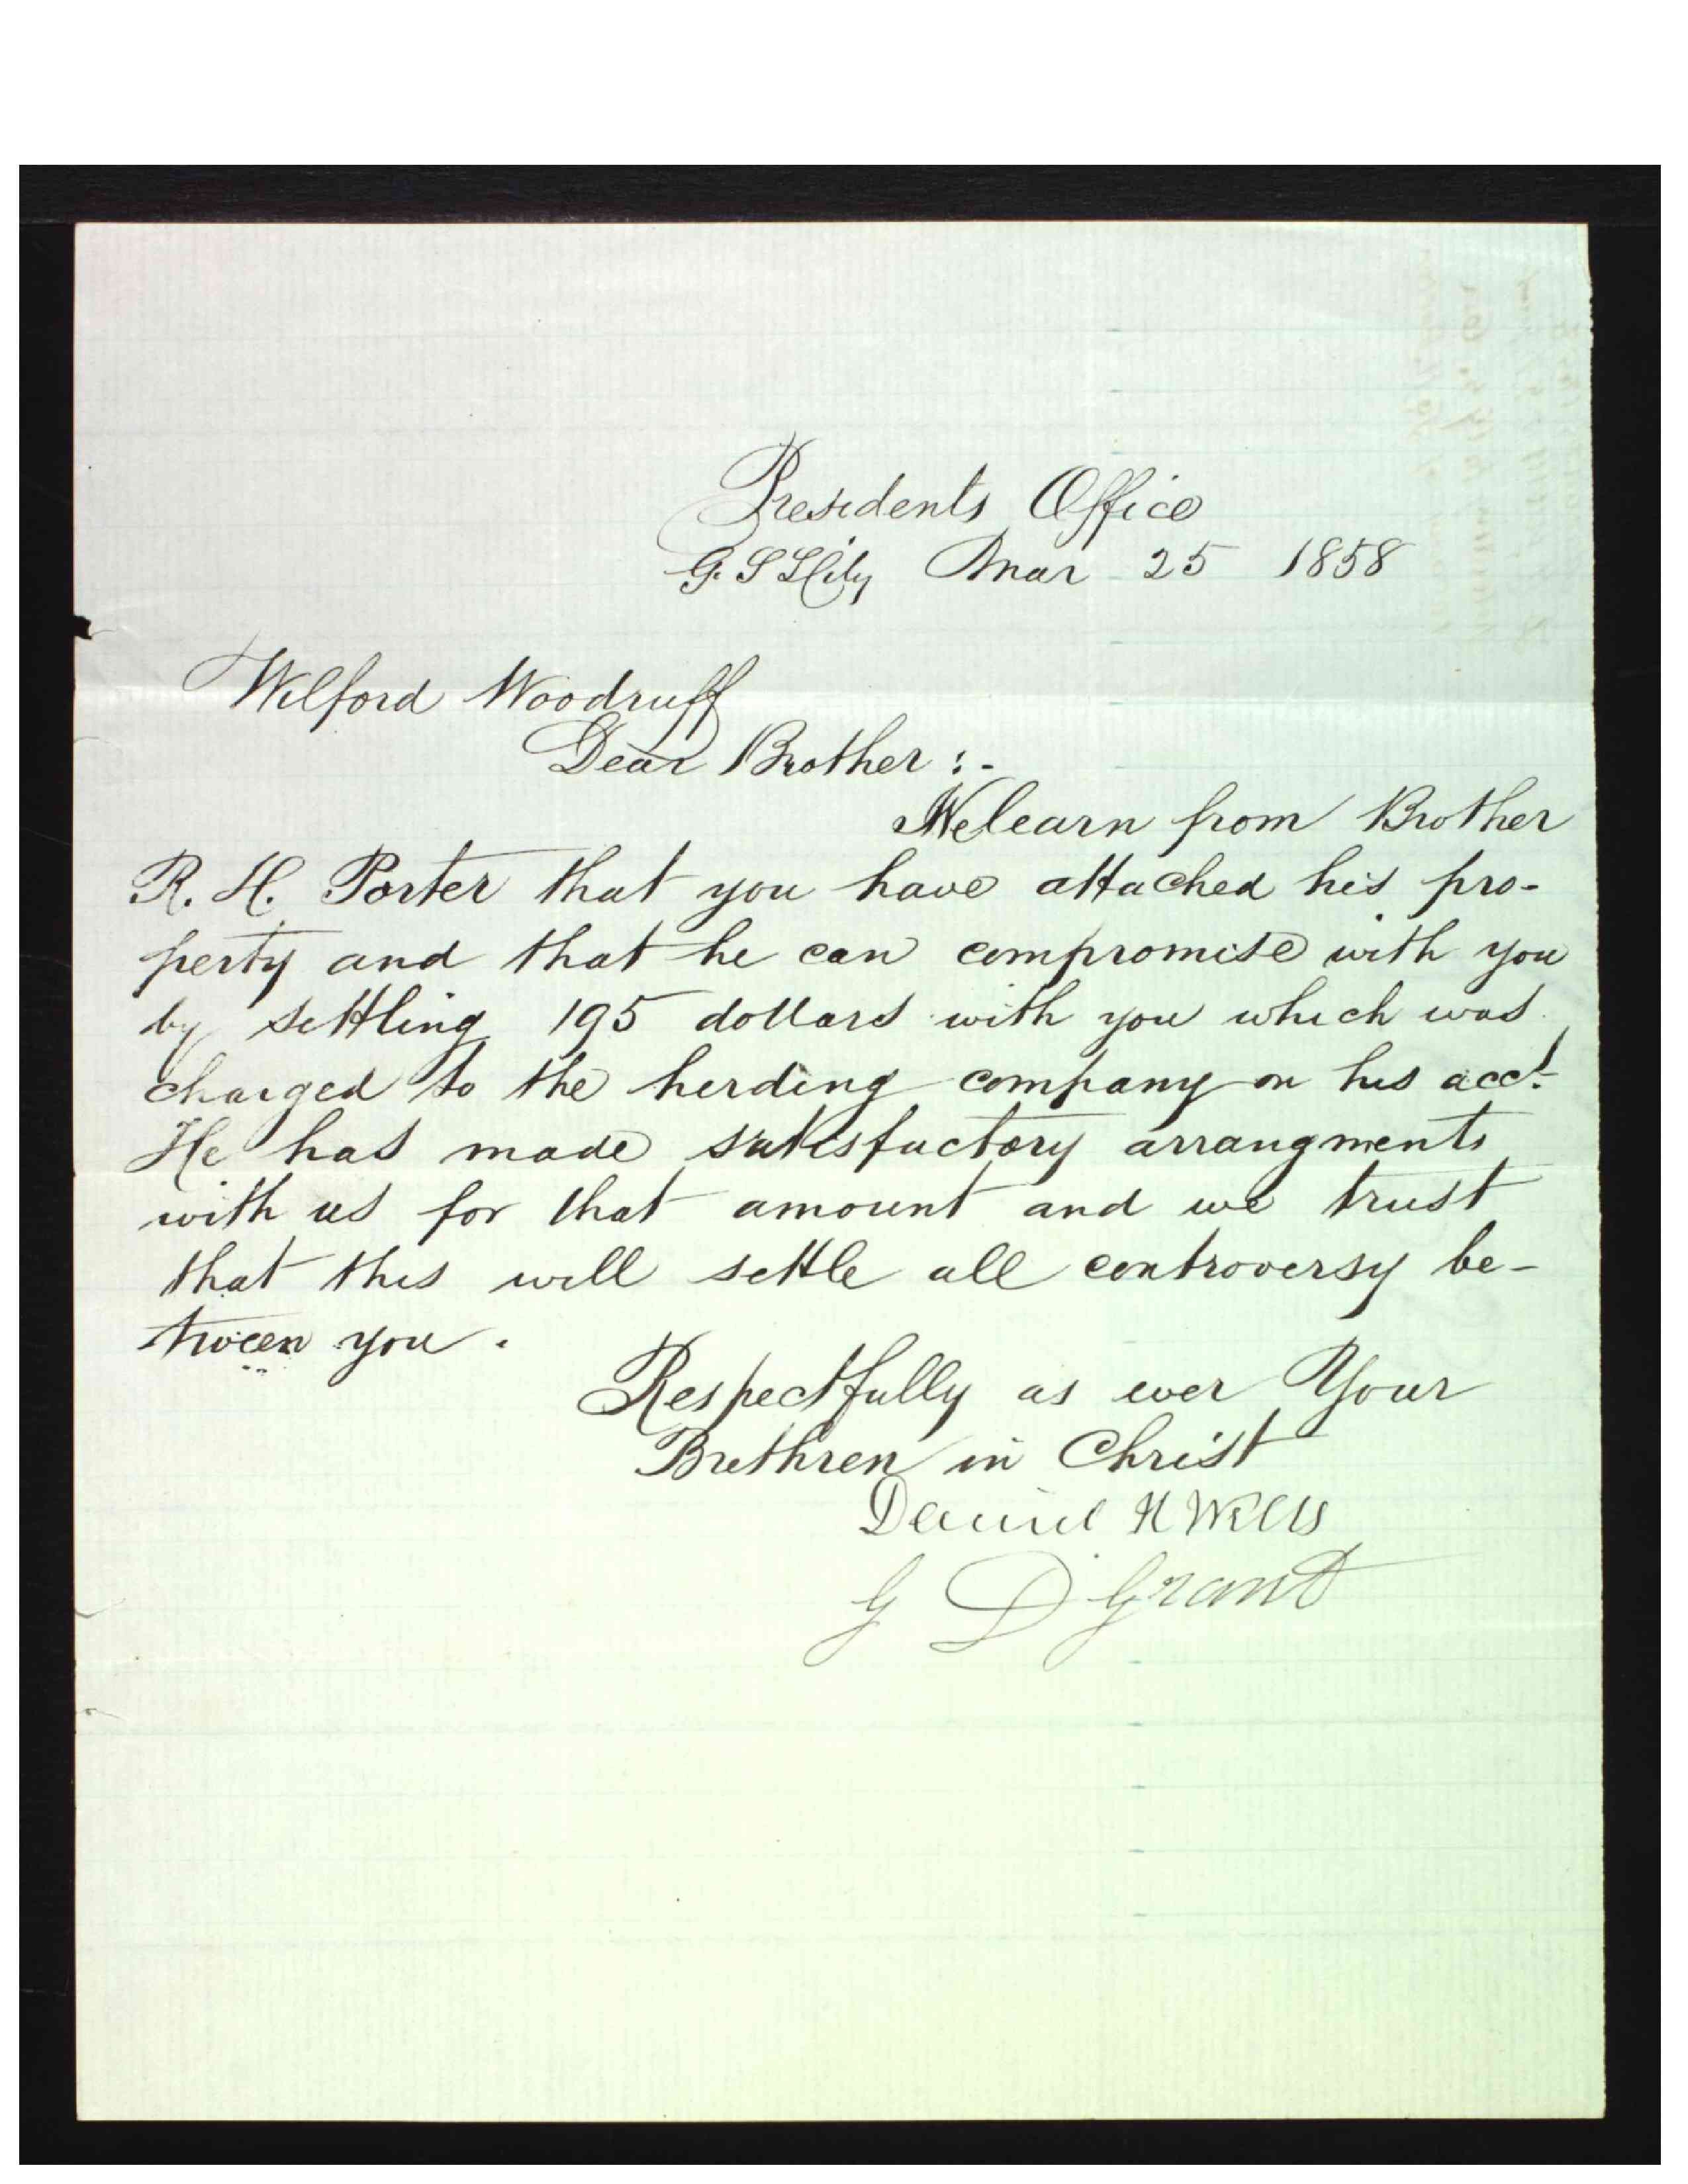 Presidents Office
G. S L City Mar 25 1858
Wilford Woodruff
Dear Brother :-
We learn from Brother
R. H. Porter that you have attached his pro-
perty and that he can compromise with you
by settling 195 dollars with you which was
charged to the herding company on his acct.
He has made satisfactory arrangments
with us for that amount and we trust
that this will settle all controversy be-
tween you.
Respectfully as ever Your
Brethren in Christ
Daniel H Wells
G D Grant